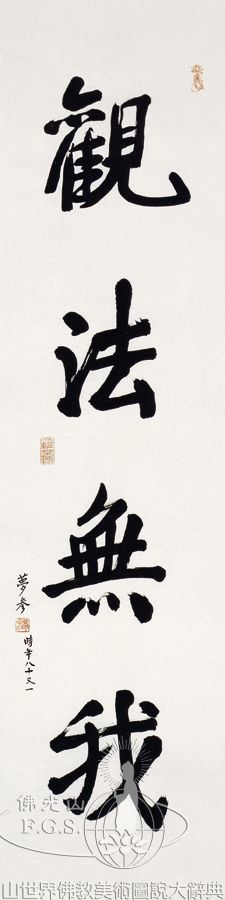 觀法無我
夢參
時年八十又一
佛光山
F.G.S.
山世界佛教美術圖說大辭典